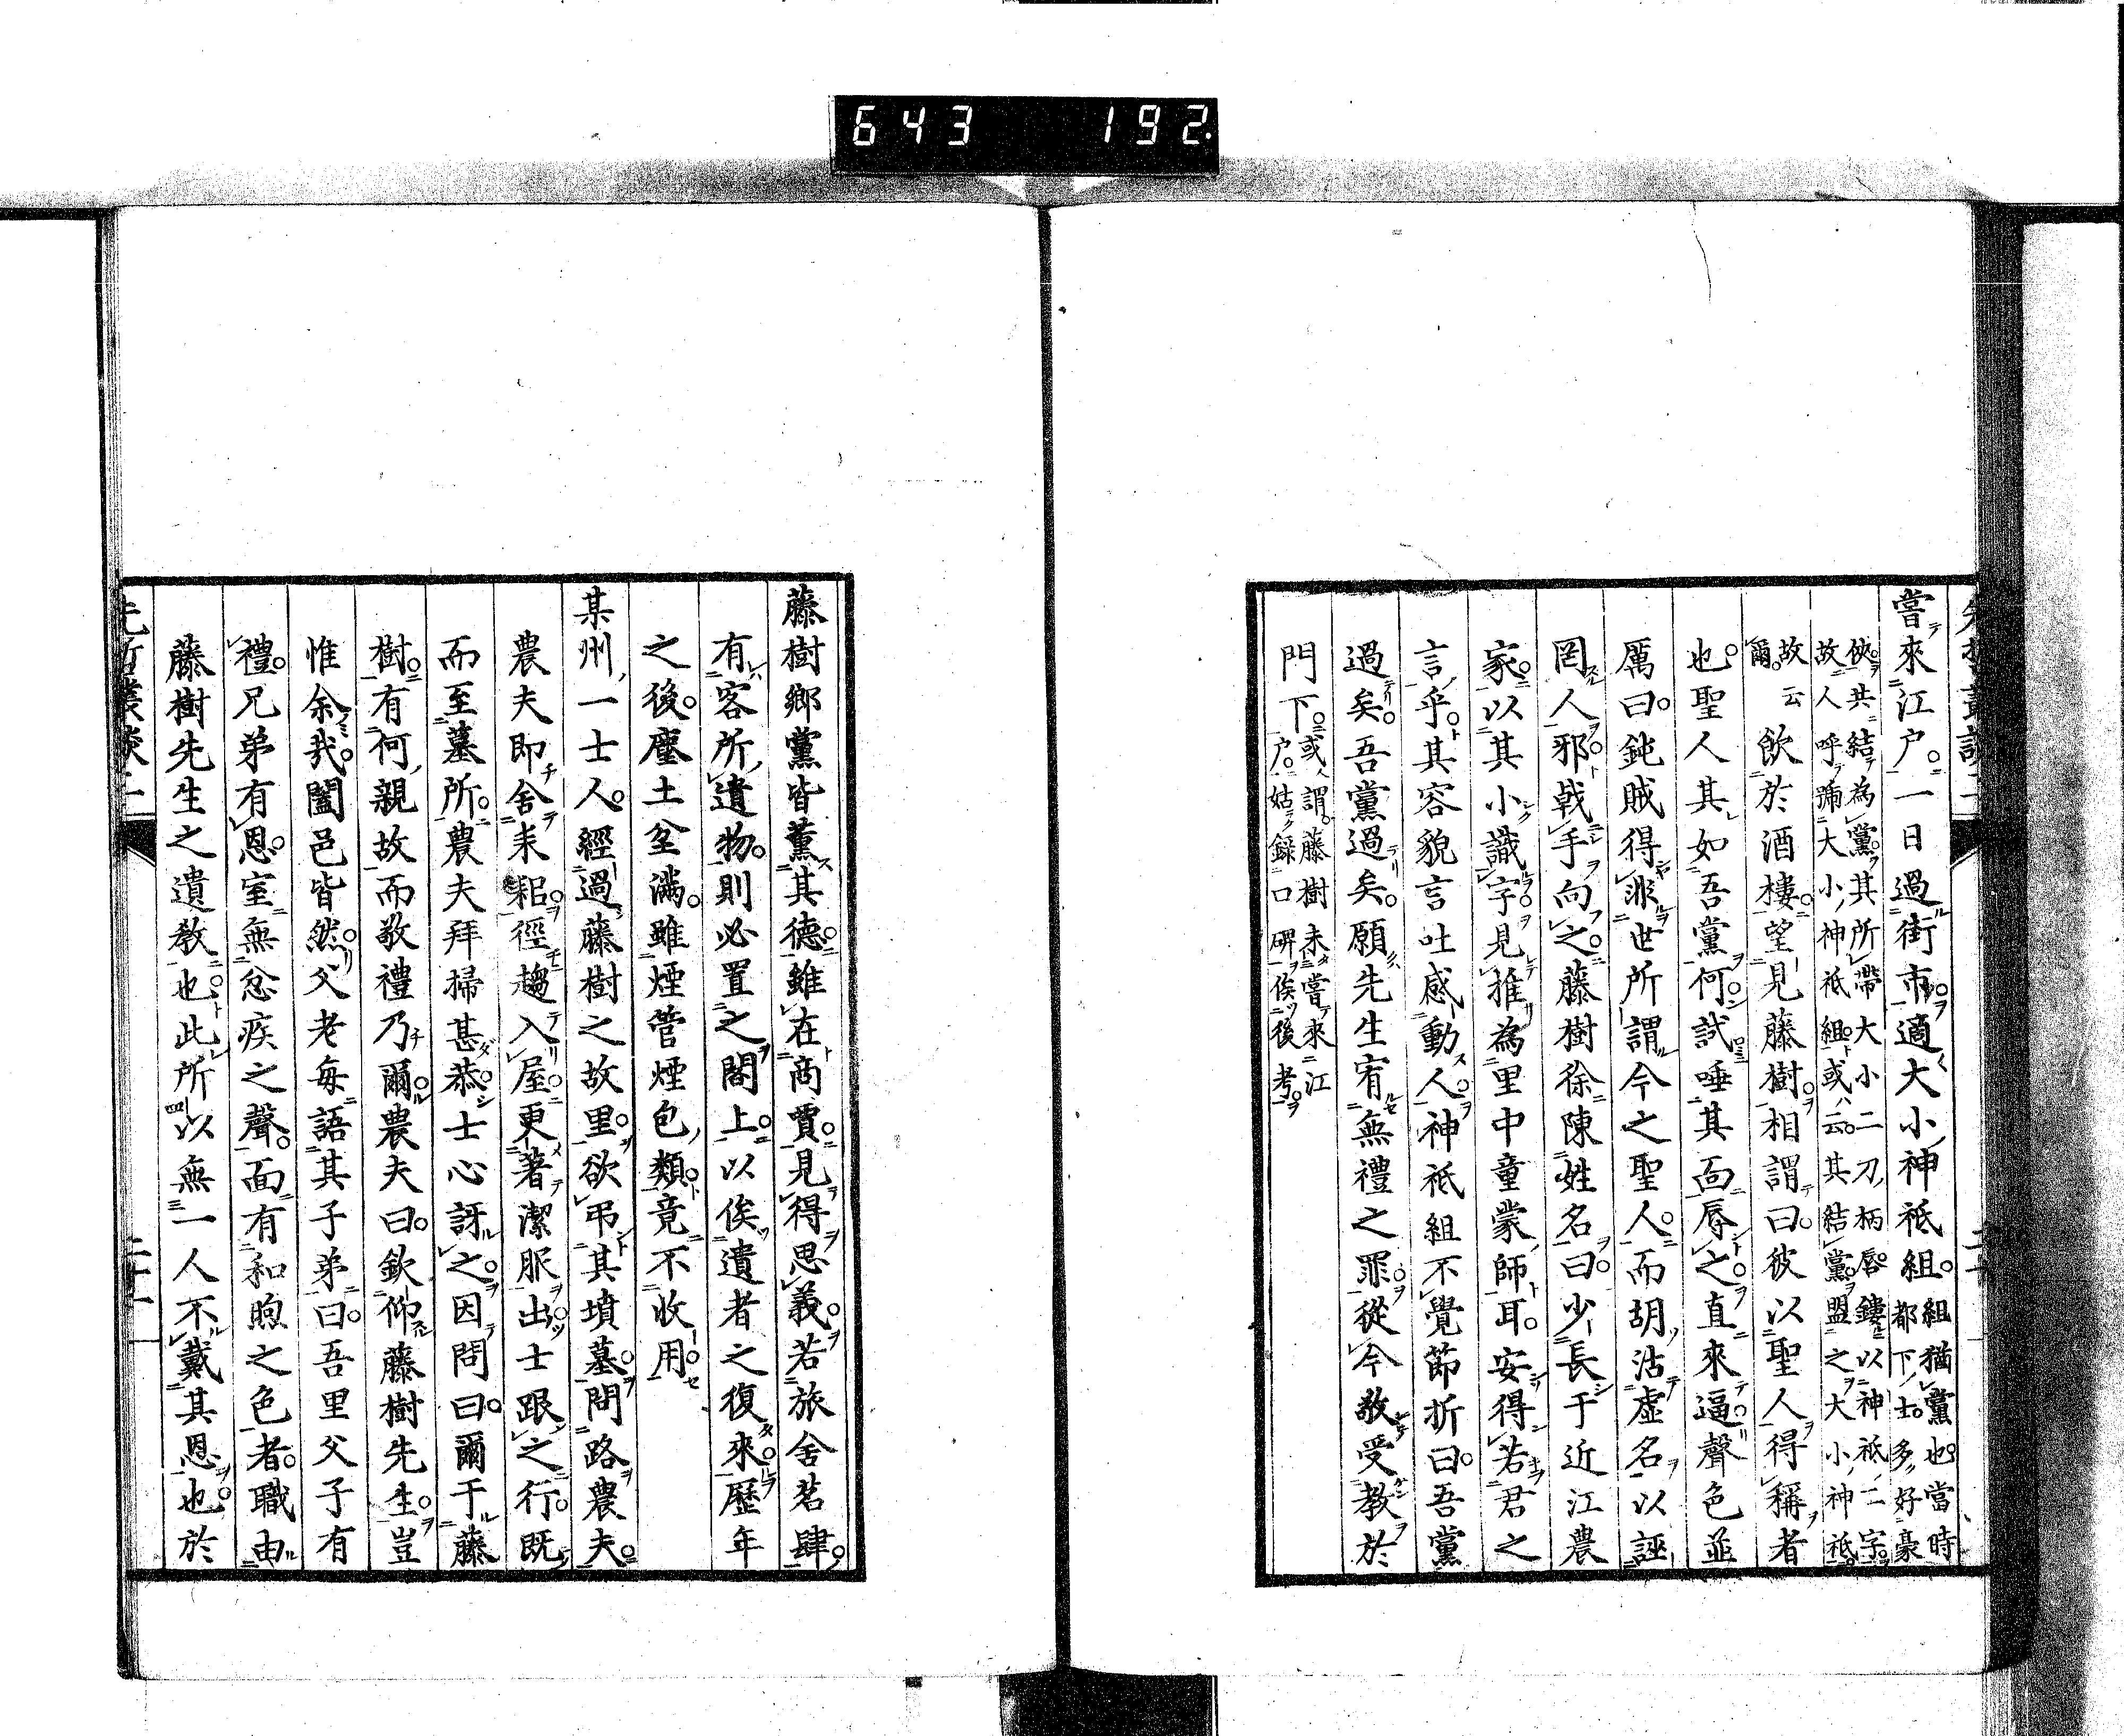 643 192
嘗來江戶。一日過街市。適大小神祇組。組猶黨也。當時
都下士。多好豪
俠。共結為黨。其所帶大小二刀。柄唇鏤以神祇二字。
故人呼號大小神祇組。或云。其結黨。盟之大小神祇。
故云
爾。飲於酒樓。望見藤樹。相謂曰。彼以聖人得稱者
也。聖人其如吾黨何。試唾其面辱之。直來逼。聲色並
厲曰。鈍賊得非世所謂今之聖人。而胡沽虛名。以誣
罔人邪。戟手向之。藤樹徐陳姓名曰。少長于近江農
家。以其小識字。見推為里中童蒙師耳。安得若君之
言乎。其容貌言吐感動人。神祇組不覺節折曰。吾黨
過矣。吾黨過矣。願先生宥無禮之罪。從今敬受教於
門下。或謂。藤樹未嘗來江
戶。姑錄口碑俟後考。
藤樹鄉黨皆薰其德。雖在商賈。見得思義。若旅舍茗肆。
有客所遺物。則必置之閣上。以俟遺者之復來。歷年
之後。塵土坌滿。雖煙管煙包類。竟不收用。
某州一士人。經過藤樹之故里。欲弔其墳墓。問路農夫。
農夫即舍耒耜。徑趨入屋。更著潔服出。士跟之行。既
而至墓所。農夫拜掃甚恭。士心訝之。因問曰。爾于藤
樹。有何親故。而敬禮乃爾。農夫曰。欽仰藤樹先生。豈
惟余哉。闔邑皆然。父老每語其子弟曰。吾里父子有
禮。兄弟有恩。室無忿疾之聲。面有和煦之色者。職由
藤樹先生之遺教也。此所以無一人不戴其恩也。於
先哲叢談二
二十一